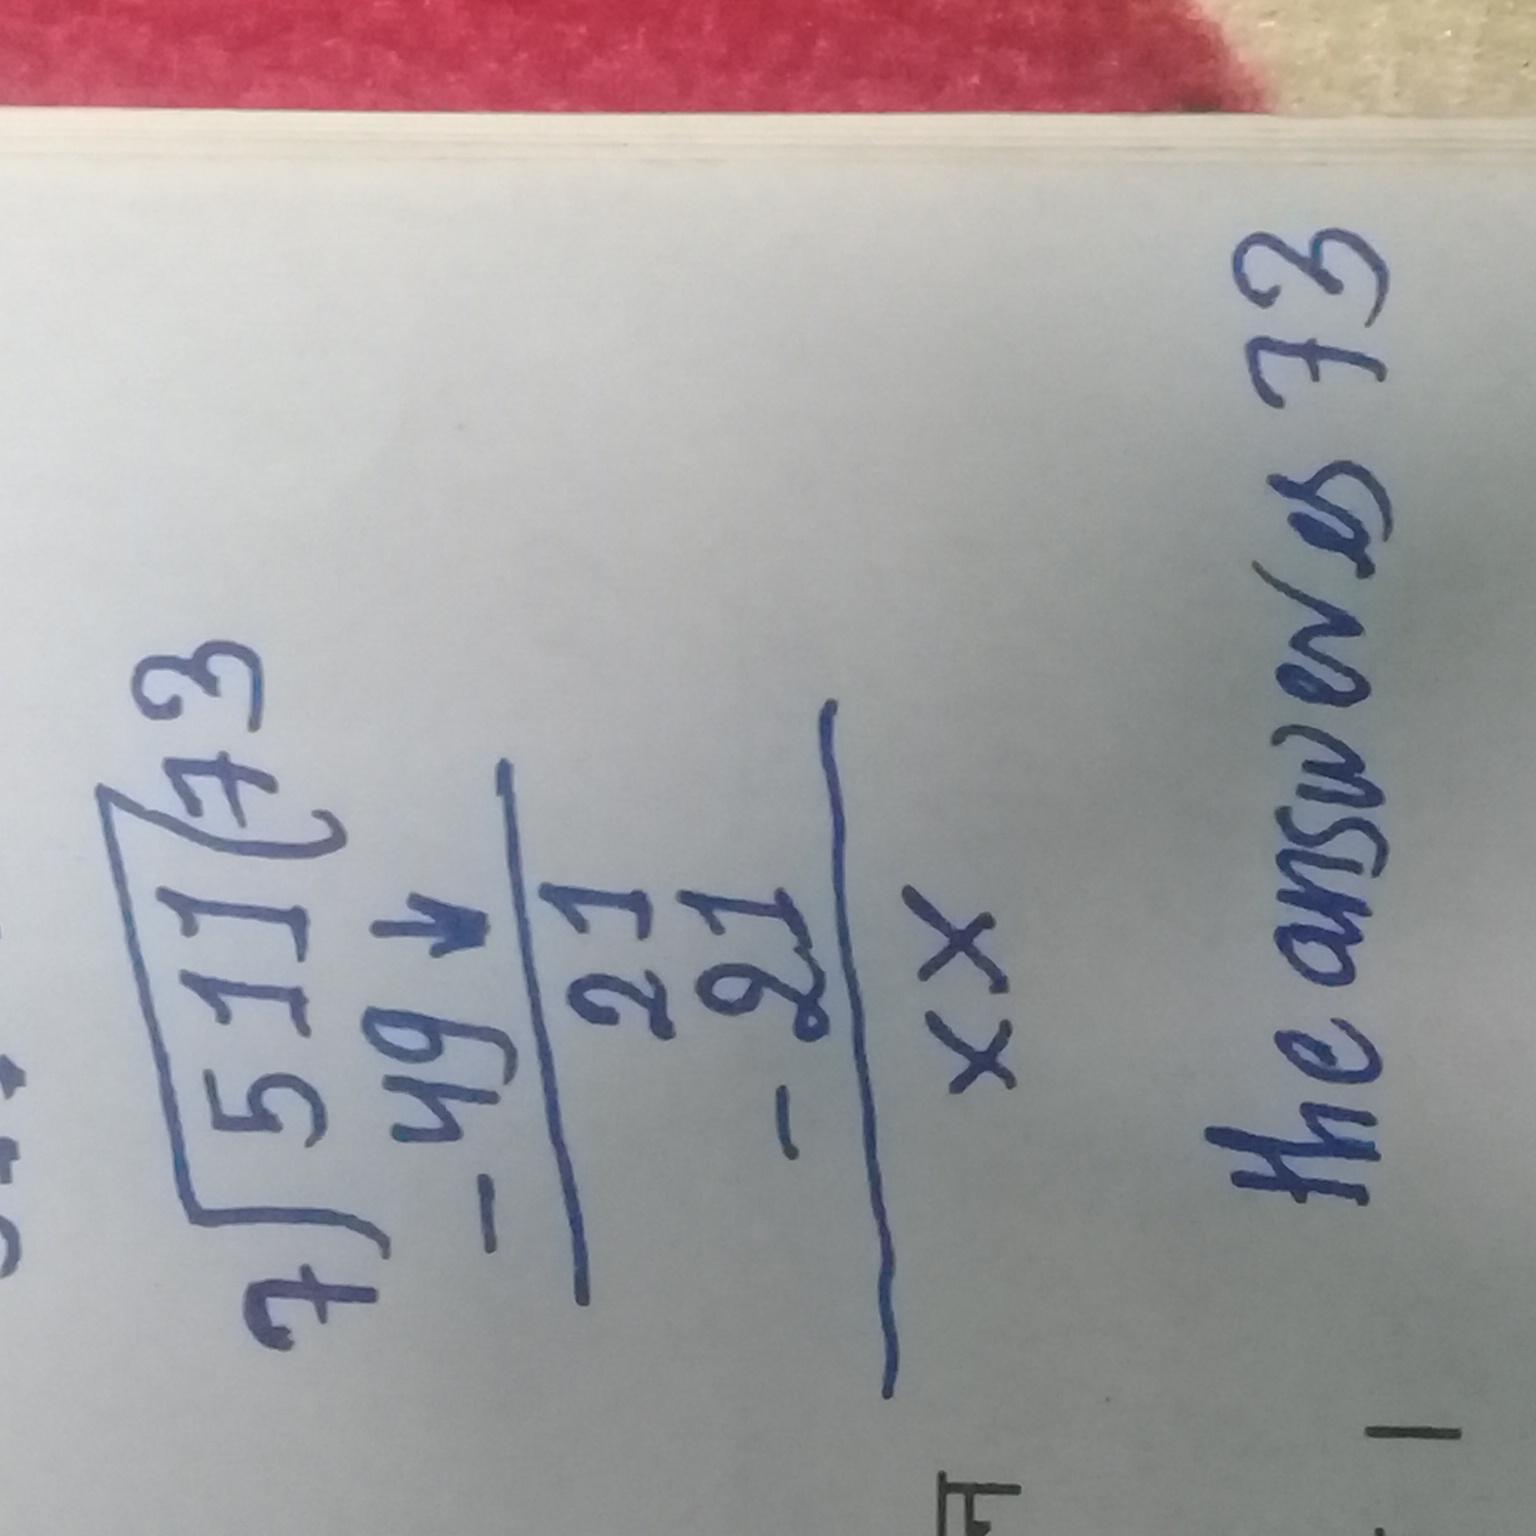 7)511(73
-49↓
21
-21
xx
the answer is 73